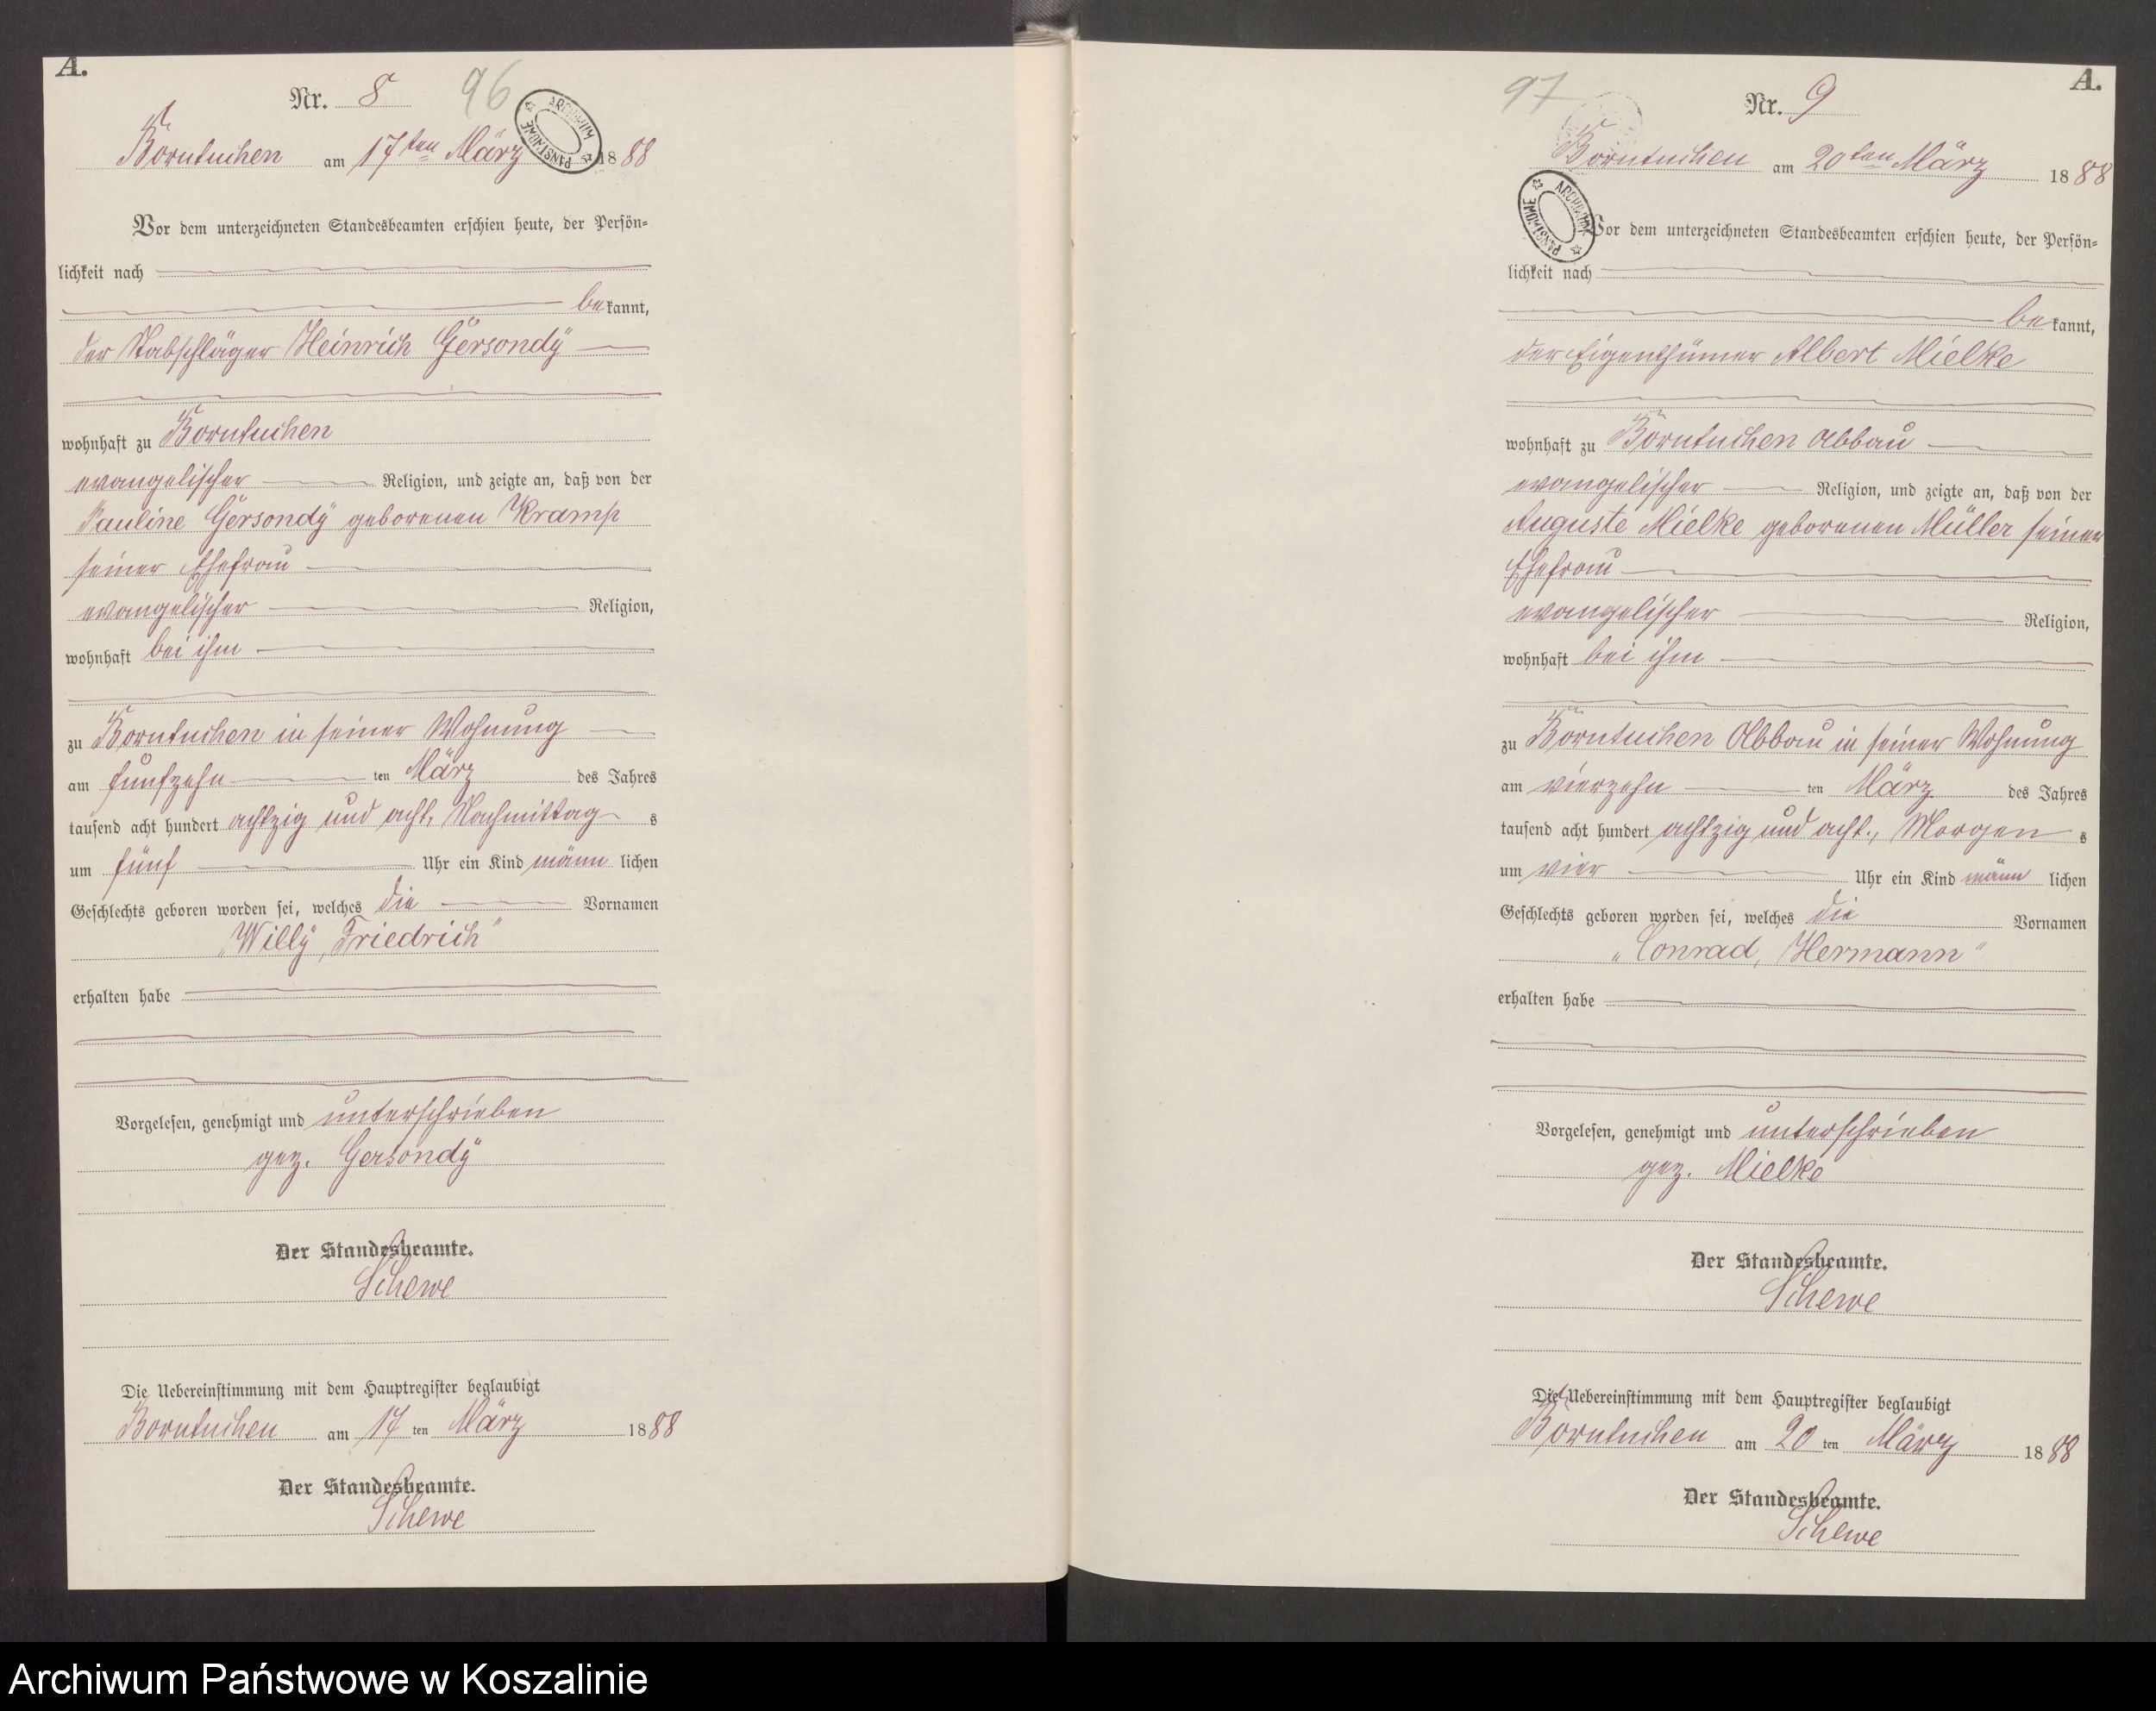 A.
Nr. 8
96
ARCHIWUM PAŃSTWOWE
Borntuchen am 17ten März 1888
Vor dem unterzeichneten Standesbeamten erschien heute, der Persön-
lichkeit nach
bekannt,
der Stabschläger Heinrich Gersondÿ
wohnhaft zu Borntuchen
evangelischer Religion, und zeigte an, daß von der
Pauline Gersondÿ geborenen Kramp
seiner Ehefrau
evangelischer Religion,
wohnhaft bei ihm
zu Borntuchen in seiner Wohnung
am fünfzehn ten März des Jahres
tausend acht hundert achtzig und acht, Nachmittag s
um fünf Uhr ein Kind männ lichen
Geschlechts geboren worden sei, welches die Vornamen
„Willÿ, Friedrich“
erhalten habe
Vorgelesen, genehmigt und unterschrieben
gez. Gersondÿ
Der Standesbeamte.
Schewe
Die Uebereinstimmung mit dem Hauptregister beglaubigt
Borntuchen am 17 ten März 1888
Der Standesbeamte.
Schewe
97
A.
Nr. 9
Borntuchen am 20ten März 1888
ARCHIWUM PAŃSTWOWE
Vor dem unterzeichneten Standesbeamten erschien heute, der Persön-
lichkeit nach
bekannt,
der Eigenthümer Albert Mielke
wohnhaft zu Borntuchen Abbau
evangelischer Religion, und zeigte an, daß von der
Auguste Mielke geborenen Müller seiner
Ehefrau
evangelischer Religion,
wohnhaft bei ihm
zu Borntuchen Abbau in seiner Wohnung
am vierzehn ten März des Jahres
tausend acht hundert achtzig und acht, Morgen s
um vier Uhr ein Kind männ lichen
Geschlechts geboren worden sei, welches die Vornamen
„Conrad, Hermann“
erhalten habe
Vorgelesen, genehmigt und unterschrieben
gez. Mielke
Der Standesbeamte.
Schewe
Die Uebereinstimmung mit dem Hauptregister beglaubigt
Borntuchen am 20 ten März 1888
Der Standesbeamte.
Schewe
Archiwum Państwowe w Koszalinie